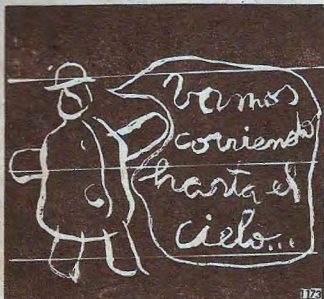 Vamos
corriendo
hasta el
cielo...
1173